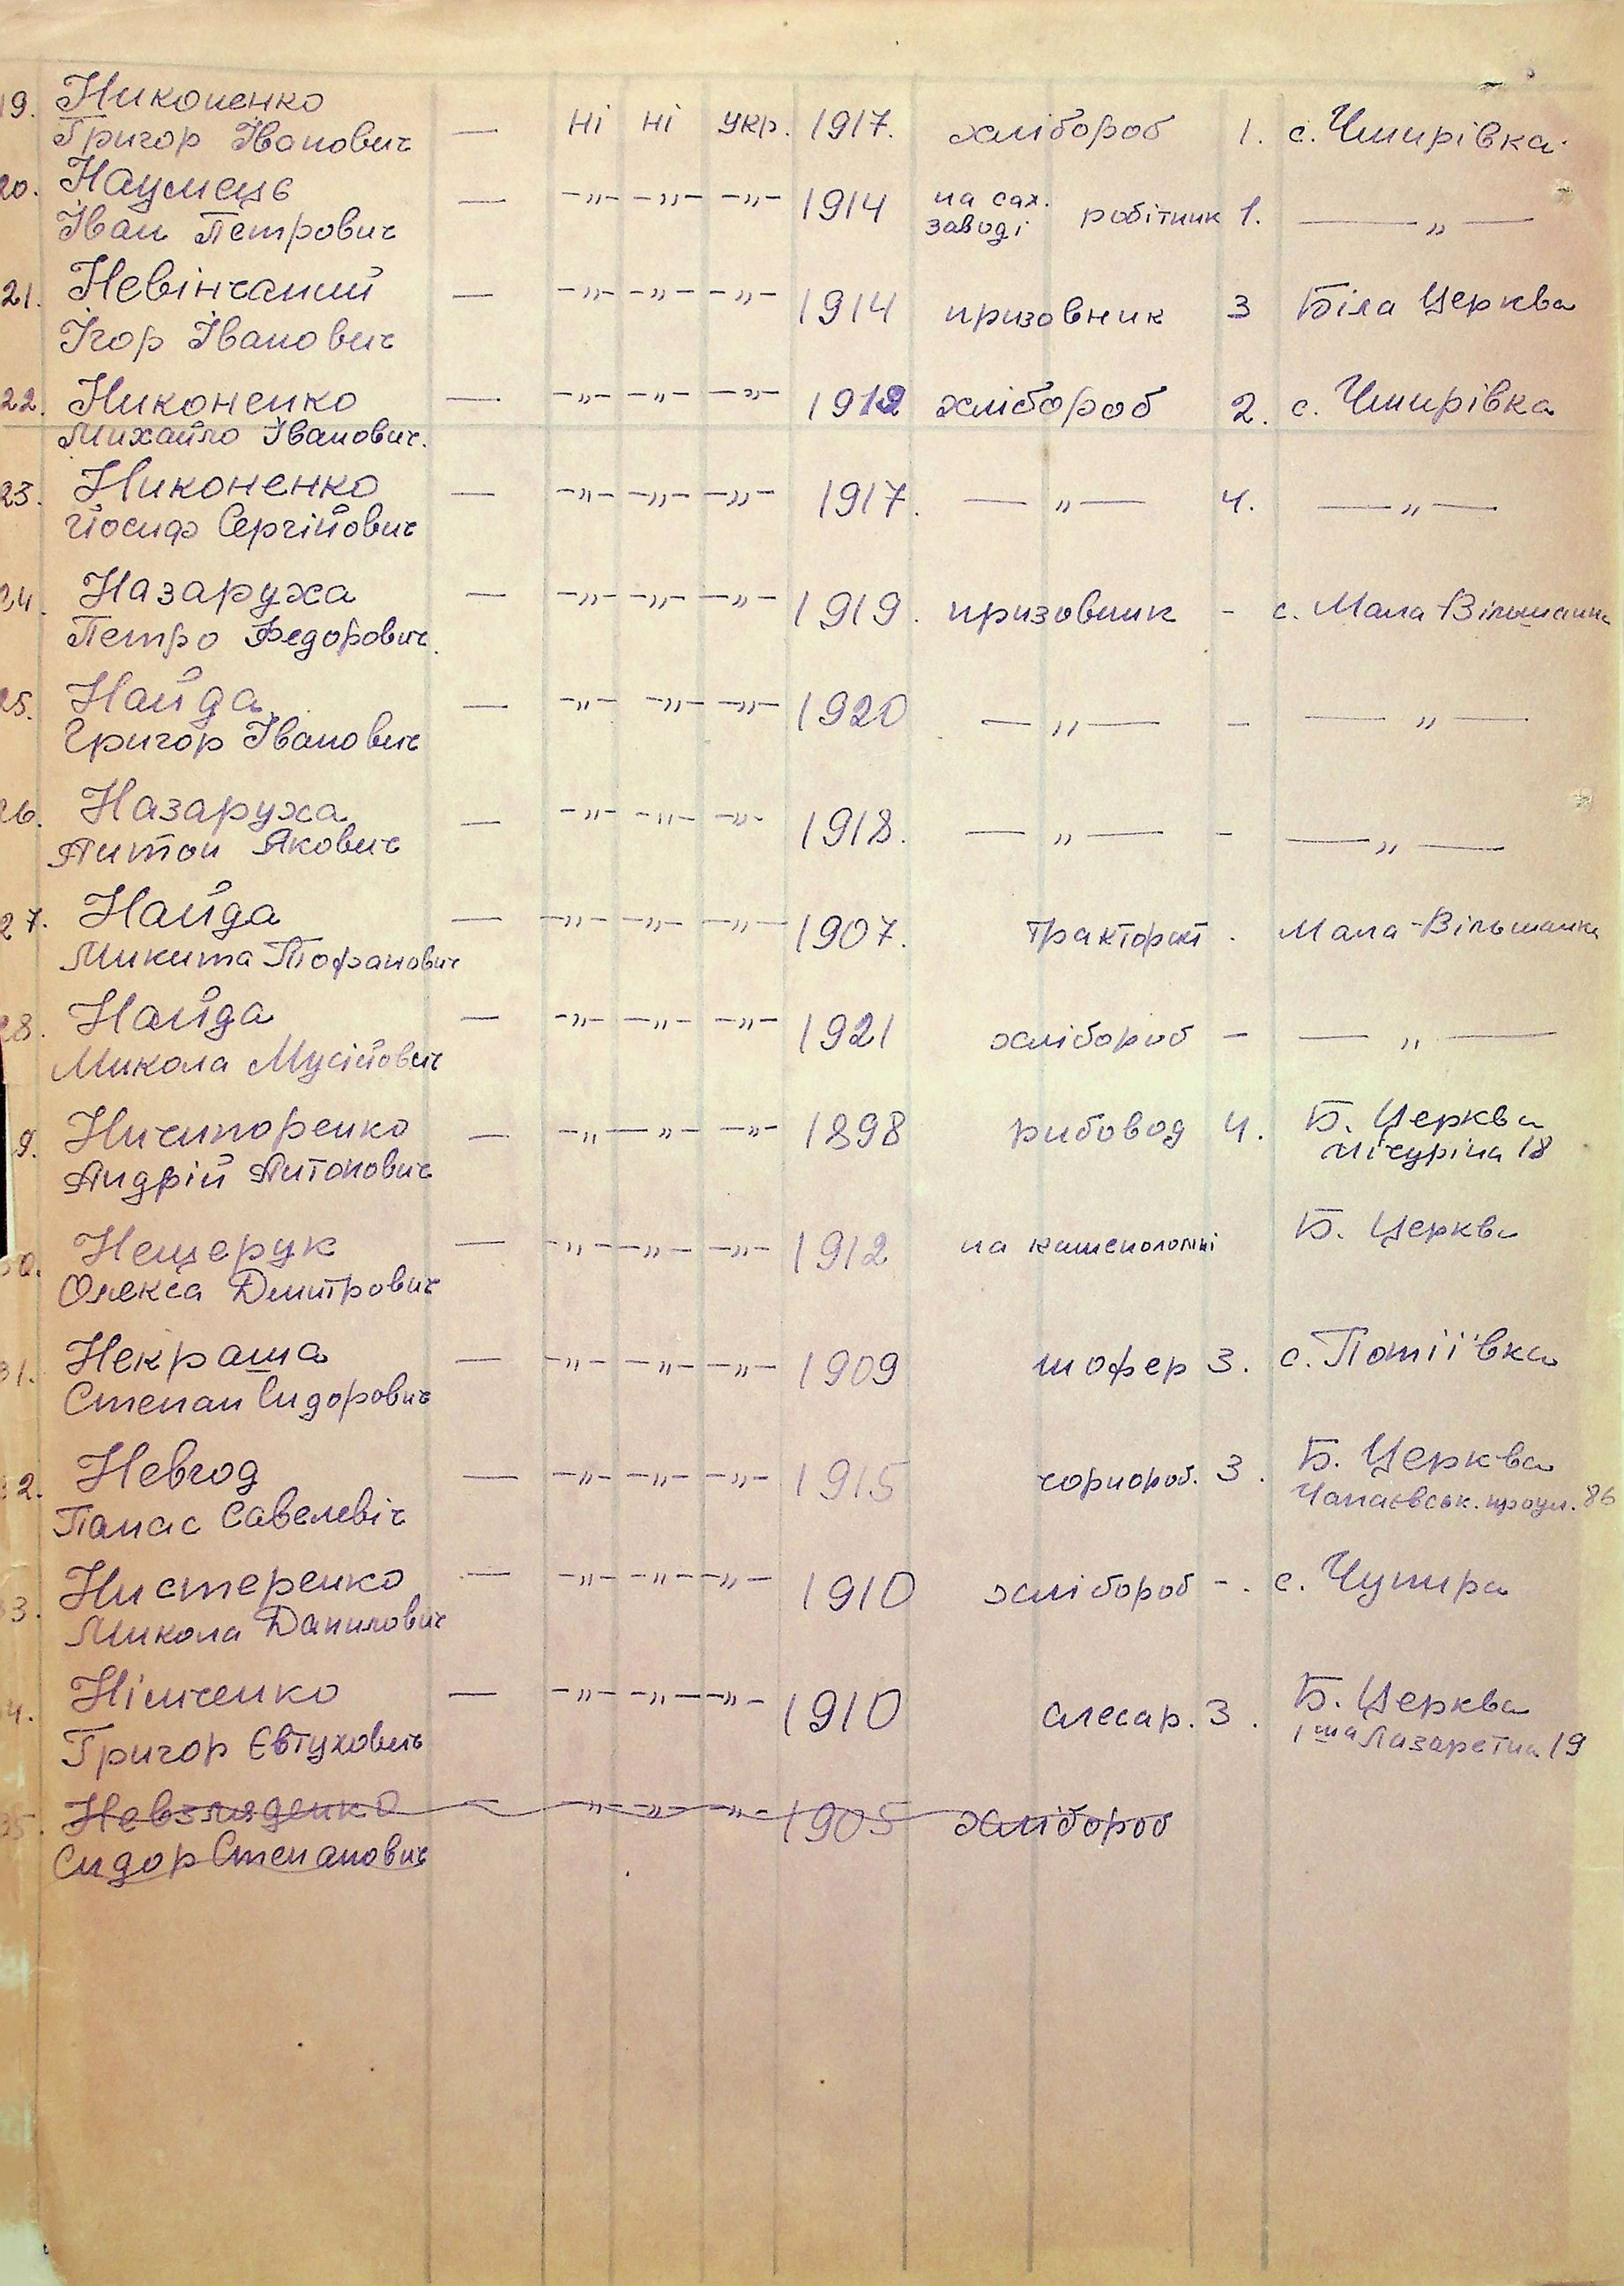 19. Никоненко
Григор Іванович — ні ні укр. 1917. хлібороб 1. с. Чмирівка
20. Наумець
Іван Петрович — -„- -„- -„- 1914 на сах. заводі робітник 1. — „ —
21. Невінчаний
Ігор Іванович — -„- -„- -„- 1914 призовник 3 Біла Церква
22. Никоненко — -„- -„- -„- 1912 хлібороб 2. с. Чмирівка
Михайло Іванович.
23. Никоненко — -„- -„- -„- 1917. — „ — 4. — „ —
Йосиф Сергійович
24. Назаруха — -„- -„- -„- 1919. призовник - с. Мала-Вільшанка
Петро Федорович.
25. Найда — -„- -„- -„- 1920 — „ — - — „ —
Григор Іванович
26. Назаруха — -„- -„- -„- 1918. — „ — - — „ —
Антон Якович
27. Найда — -„- -„- -„- 1907. тракторист . Мала-Вільшанка
Микита Тофанович
28. Найда — -„- -„- -„- 1921 хлібороб - — „ —
Микола Мусійович
9. Ничипоренко — -„- -„- -„- 1898 рибовод 4. Б. Церква
Андрій Антонович Мічуріна 18
30. Нещерук — -„- -„- -„- 1912 на каменоломні Б. Церква
Олекса Дмитрович
31. Некраша — -„- -„- -„- 1909 шофер 3. с. Потіївка
Степан Сидорович
32. Невгод — -„- -„- -„- 1915 чорнороб. 3. Б. Церква
Панас Савелевіч Чапаєвськ. проул. 86
33. Нистеренко — -„- -„- -„- 1910 хлібороб -. с. Чупира
Микола Данилович
4. Німченко — -„- -„- -„- 1910 слесар. 3. Б. Церква
Григор Євтухович 1ша Лазаретна 19
35. Невзляденко — -„- -„- -„- 1905 хлібороб
Сидор Степанович